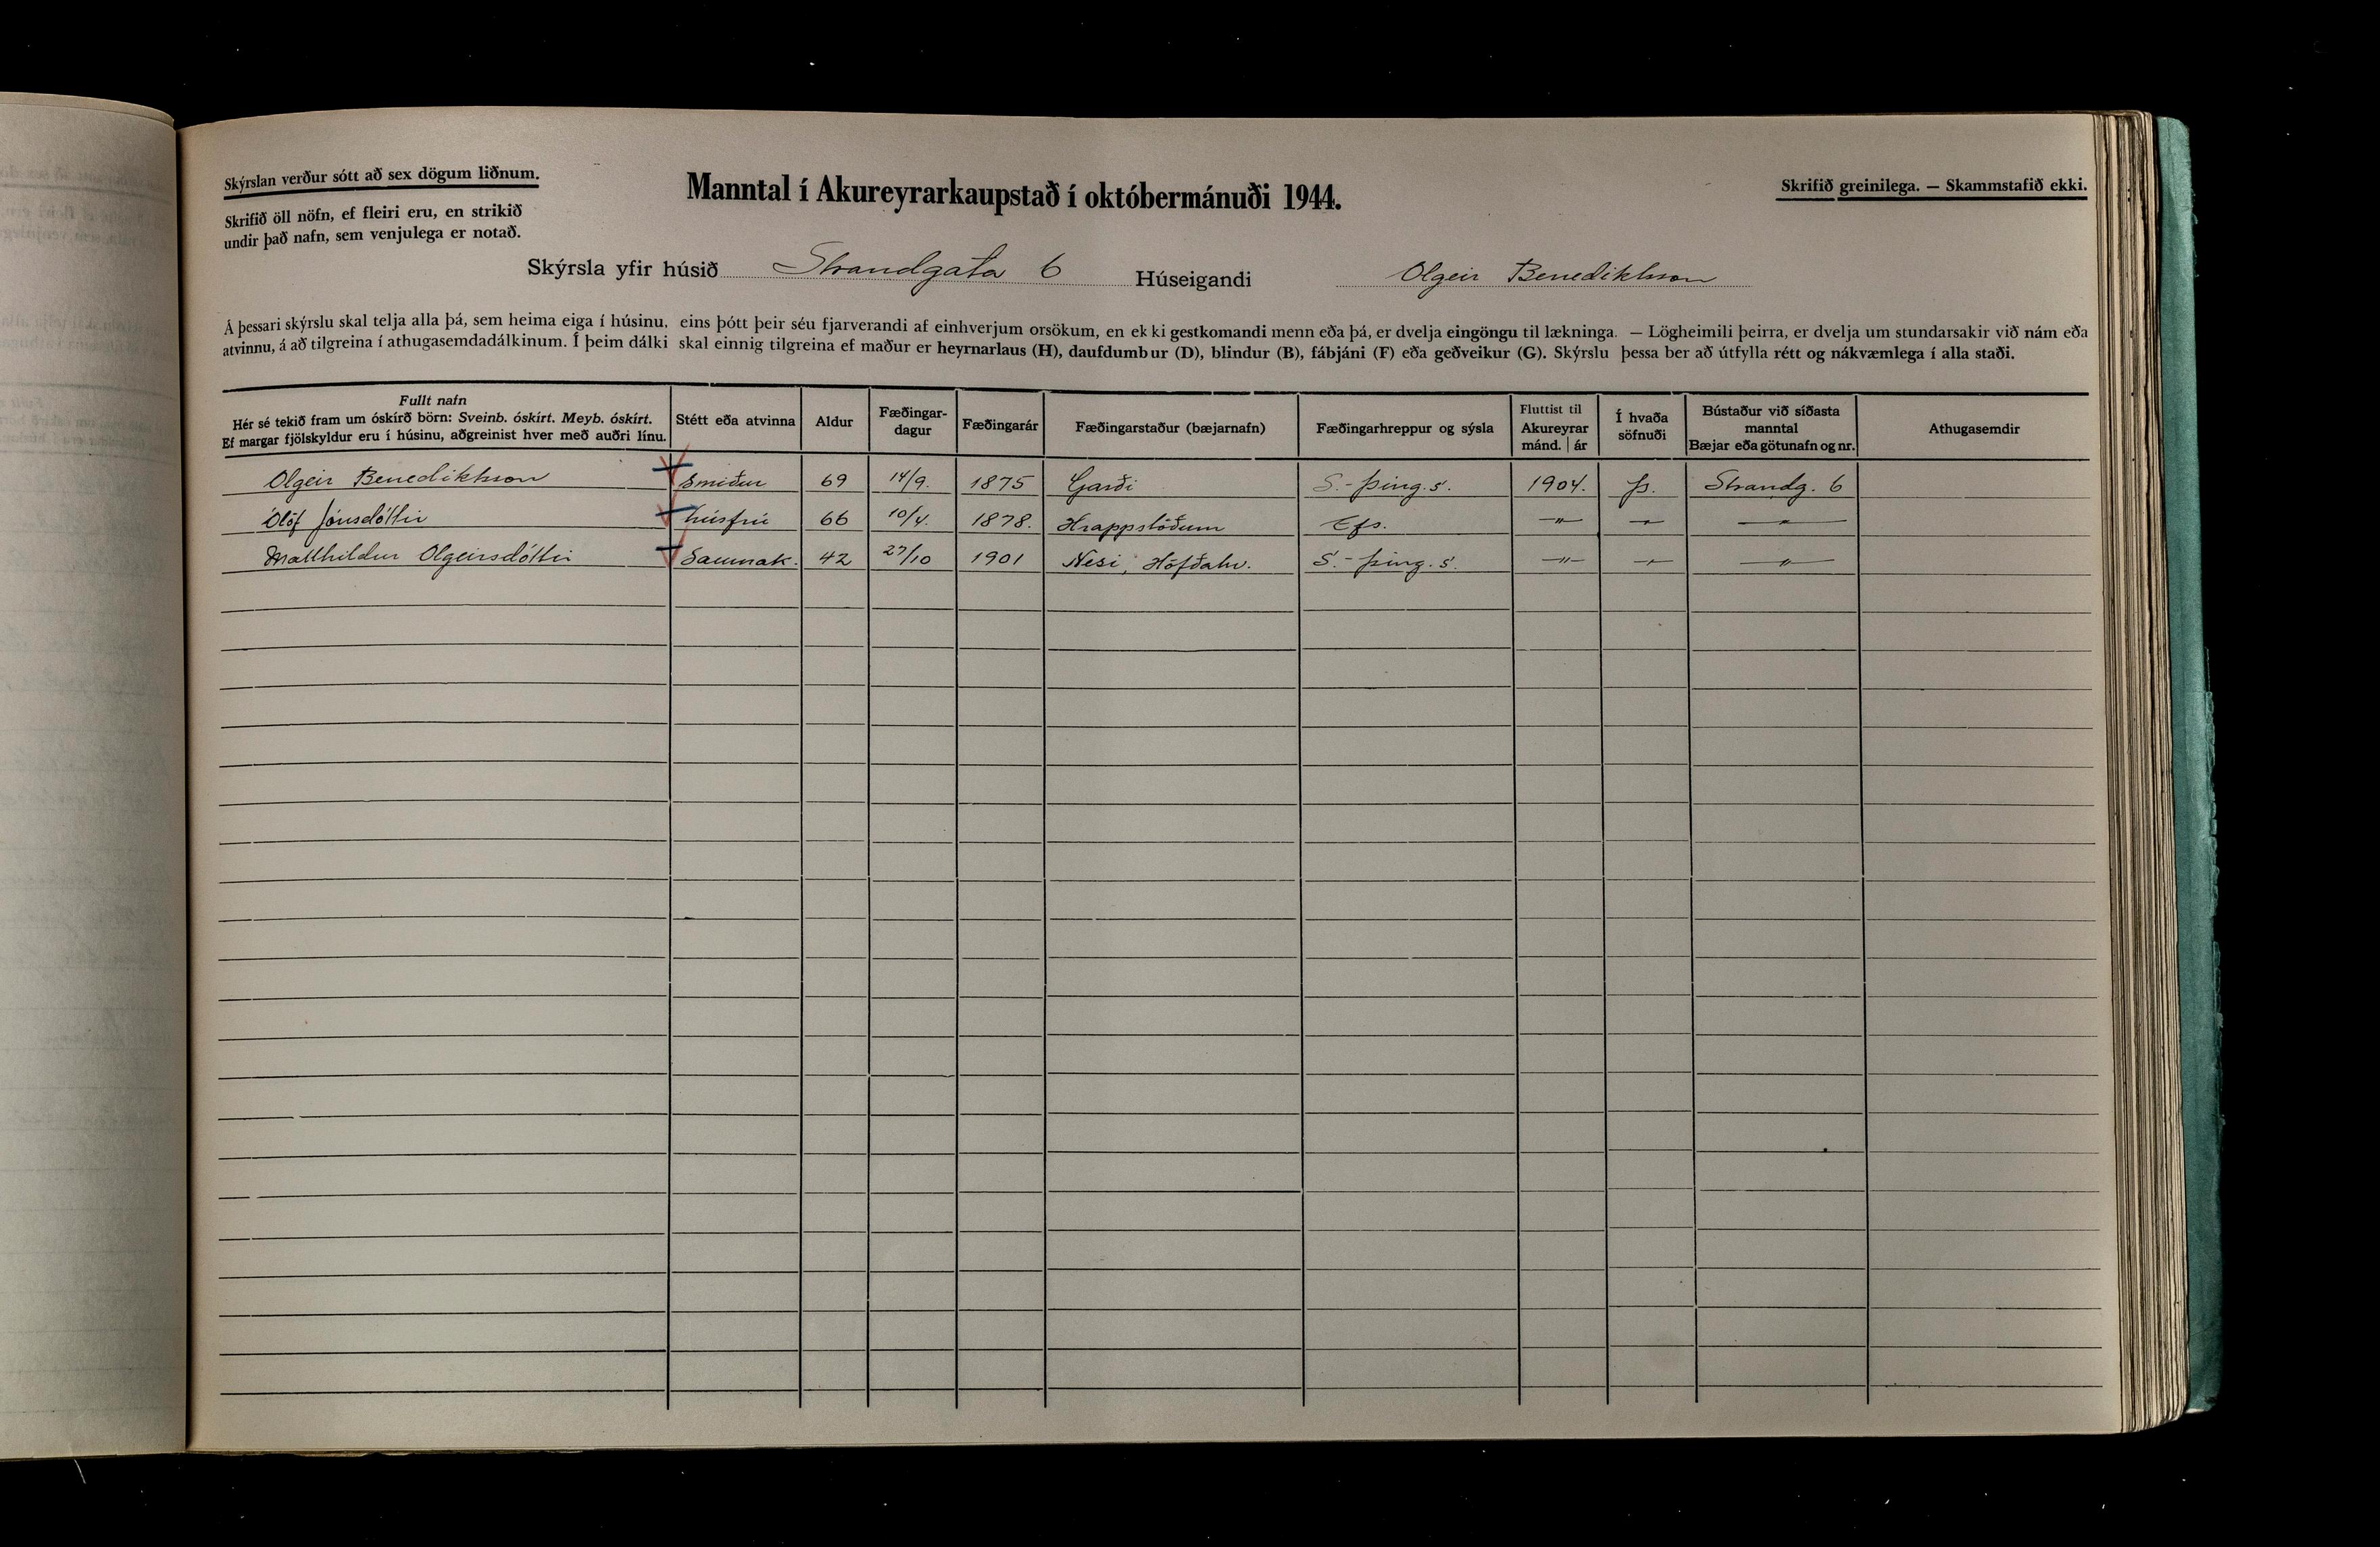 Skýrslan verður sótt að sex dögum liðnum.
Skrifið öll nöfn, ef fleiri eru, en strikið
undir það nafn, sem venjulega er notað.
Manntal í Akureyrarkaupstað í októbermánuði 1944.
Skrifið greinilega. — Skammstafið ekki.
Skýrsla yfir húsið Strandgata 6 Húseigandi Olgeir Benediktsson
Á þessari skýrslu skal telja alla þá, sem heima eiga í húsinu, eins þótt þeir séu fjarverandi af einhverjum orsökum, en ekki gestkomandi menn eða þá, er dvelja eingöngu til lækninga. — Lögheimili þeirra, er dvelja um stundarsakir við nám eða
atvinnu, á að tilgreina í athugasemdadálkinum. Í þeim dálki skal einnig tilgreina ef maður er heyrnarlaus (H), daufdumbur (D), blindur (B), fábjáni (F) eða geðveikur (G). Skýrslu þessa ber að útfylla rétt og nákvæmlega í alla staði.
Fullt nafn
Hér sé tekið fram um óskírð börn: Sveinb. óskírt. Meyb. óskírt.
Ef margar fjölskyldur eru í húsinu, aðgreinist hver með auðri línu.
Stétt eða atvinna
Aldur
Fæðingar-
dagur
Fæðingarár
Fæðingarstaður (bæjarnafn)
Fæðingarhreppur og sýsla
Fluttist til
Akureyrar
mánd. | ár
Í hvaða
söfnuði
Bústaður við síðasta
manntal
Bæjar eða götunafn og nr.
Athugasemdir
Olgeir Benediktsson Smiður 69 14/9. 1875 Garði S.-Þing.s. 1904. Þ. Strandg. 6
Ólöf Jónsdóttir húsfrú 66 10/4. 1878. Hrappstöðum Efs. —"— —"— —"—
Matthildur Olgeirsdóttir Saumak. 42 27/10 1901 Nesi, Höfðahv. S.-Þing.s. —"— —"— —"—